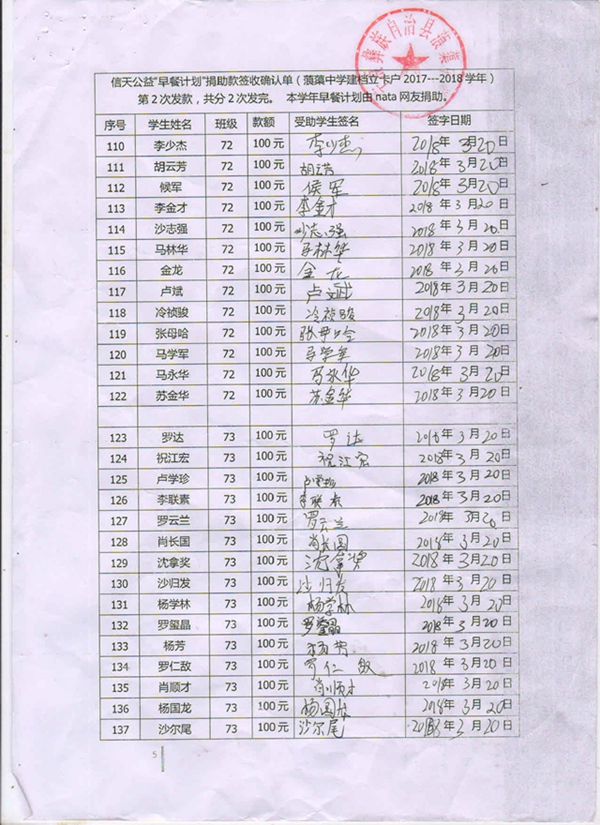 彝族自治县蒗蕖
信天公益"早餐计划"捐助款签收确认单（蒗蕖中学建档立卡户2017---2018学年）
第2次发款，共分2次发完。 本学年早餐计划由nata网友捐助。
序号 学生姓名 班级 款额 受助学生签名 签字日期
110 李少杰 72 100元 李少杰 2018年3月20日
111 胡云芳 72 100元 胡云芳 2018年3月20日
112 候军 72 100元 候军 2018年3月20日
113 李金才 72 100元 李金才 2018年3月20日
114 沙志强 72 100元 沙志强 2018年3月20日
115 马林华 72 100元 马林华 2018年3月20日
116 金龙 72 100元 金龙 2018年3月20日
117 卢斌 72 100元 卢斌 2018年3月20日
118 冷祯骏 72 100元 冷祯骏 2018年3月20日
119 张母哈 72 100元 张母哈 2018年3月20日
120 马学军 72 100元 马学军 2018年3月20日
121 马永华 72 100元 马永华 2018年3月20日
122 苏金华 72 100元 苏金华 2018年3月20日
123 罗达 73 100元 罗达 2018年3月20日
124 祝江宏 73 100元 祝江宏 2018年3月20日
125 卢学珍 73 100元 卢学珍 2018年3月20日
126 李联素 73 100元 李联素 2018年3月20日
127 罗云兰 73 100元 罗云兰 2018年3月20日
128 肖长国 73 100元 肖长国 2018年3月20日
129 沈拿奖 73 100元 沈拿奖 2018年3月20日
130 沙归发 73 100元 沙归发 2018年3月20日
131 杨学林 73 100元 杨学林 2018年3月20日
132 罗玺晶 73 100元 罗玺晶 2018年3月20日
133 杨芳 73 100元 杨芳 2018年3月20日
134 罗仁敌 73 100元 罗仁敌 2018年3月20日
135 肖顺才 73 100元 肖顺才 2018年3月20日
136 杨国龙 73 100元 杨国龙 2018年3月20日
137 沙尔尾 73 100元 沙尔尾 2018年3月20日
5